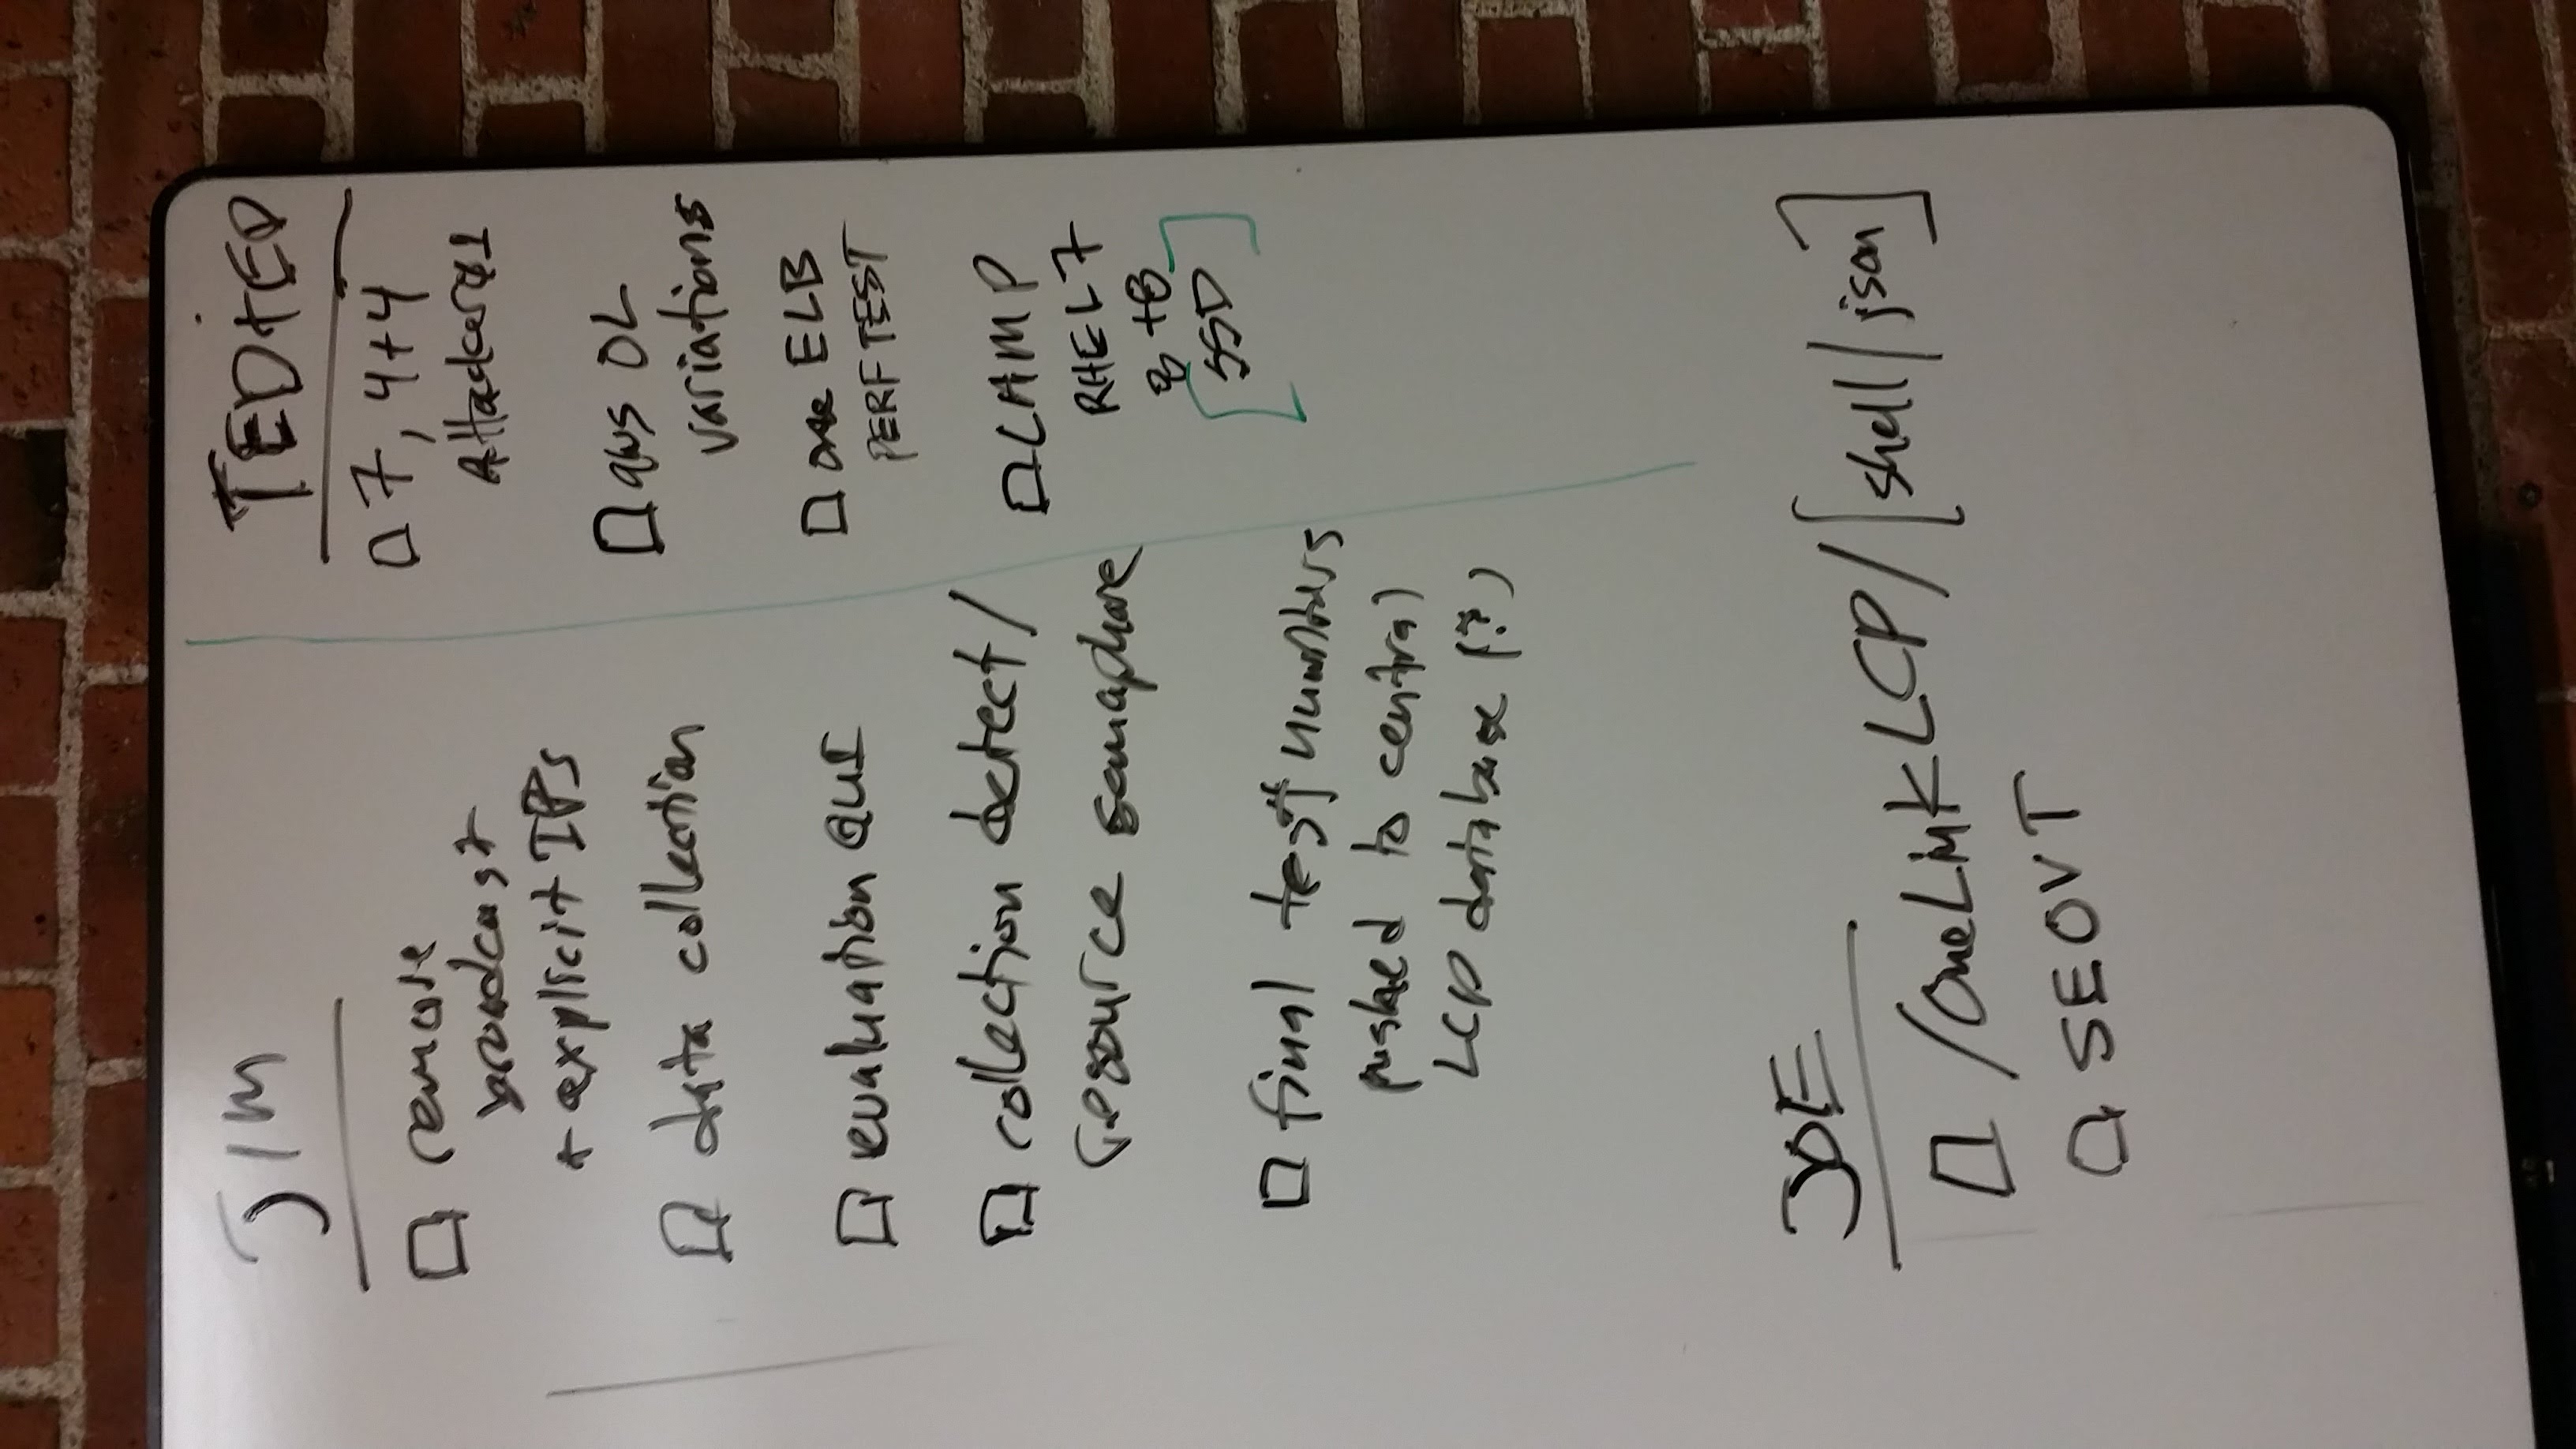 JIM
□ remove
broadcast
+ explicit IPs
□ data collection
□ evaluation GUI
□ collection detect/
resource semaphore
□ final test numbers
pushed to central
LCP database (?)
TEDTED
□ 7, 4+4
□ aws OL
variations
□ one ELB
PERF TEST
□ LAMP
RHEL7
8 TB
[SSD]
JOE
□ /OneLinkLCP/[shell/json]
□ SEOVT